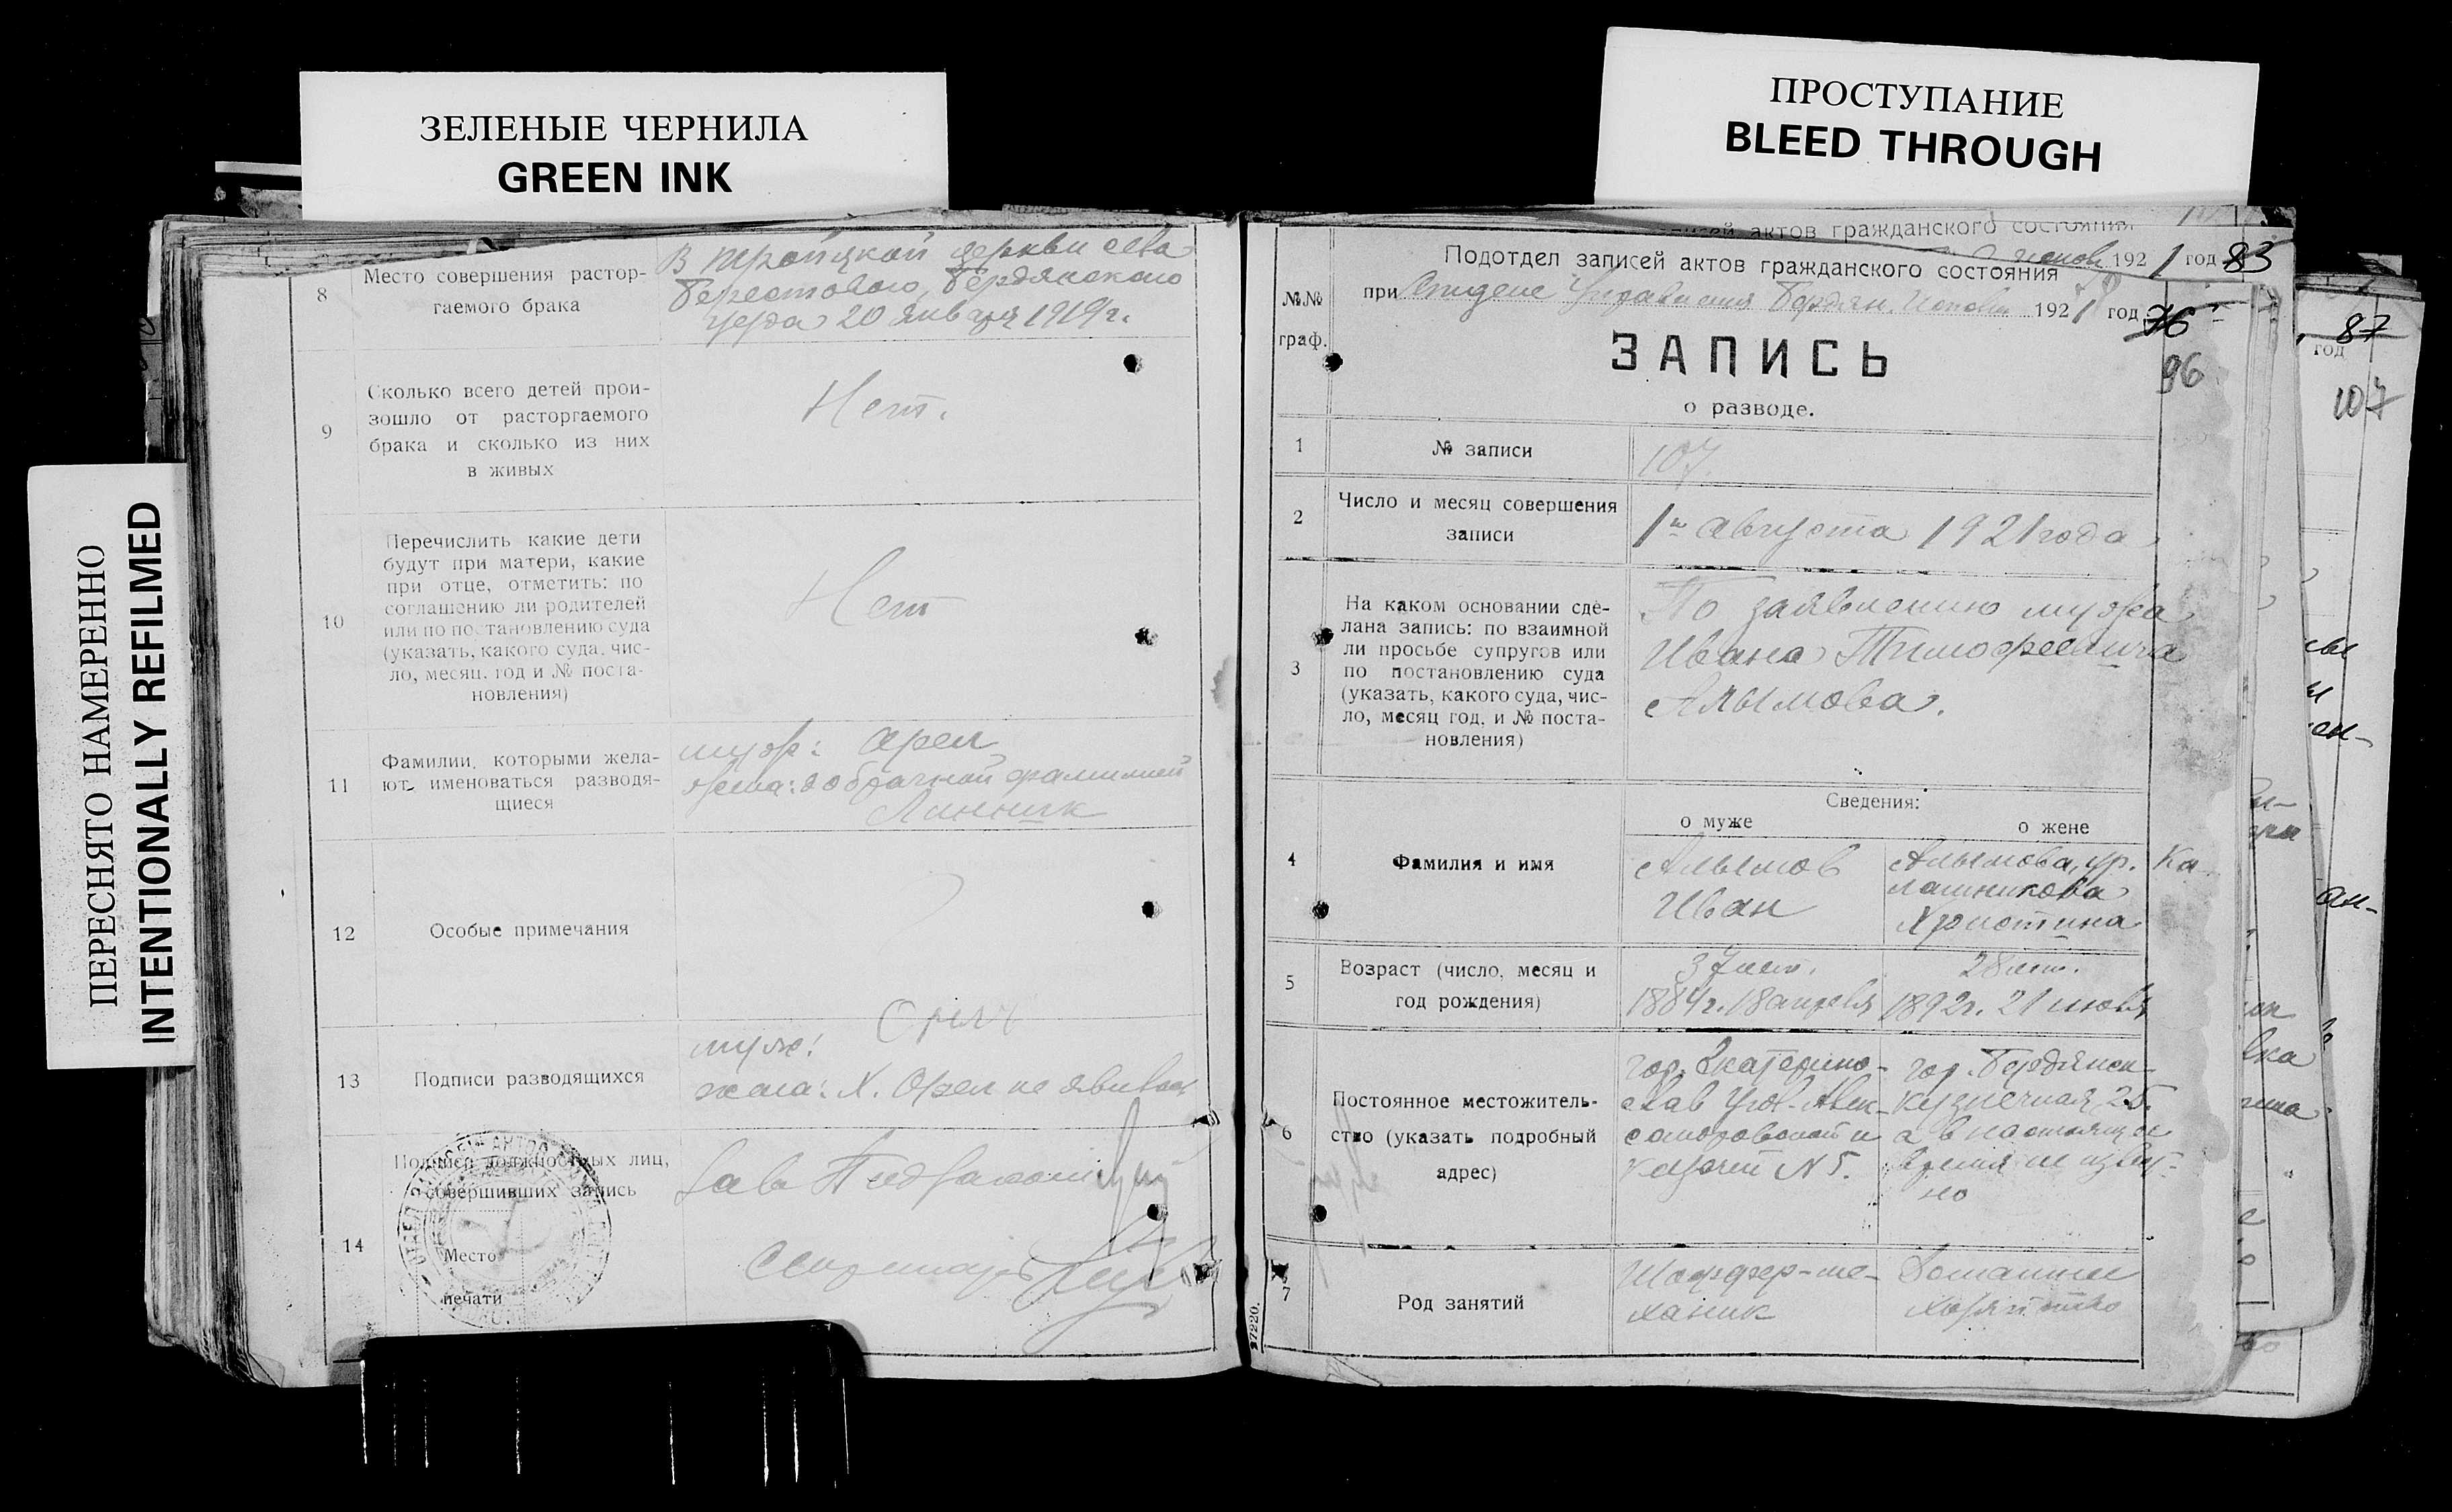 ЗЕЛЕНЫЕ ЧЕРНИЛА
GREEN INK
ПРОСТУПАНИЕ
BLEED THROUGH
ПЕРЕСНЯТО НАМЕРЕННО
INTENTIONALLY REFILMED
8
Место совершения растор-
гаемого брака
В Тройцкой церкви села
Берестового, Бердянского
уезда 20 января 1919 г.
9
Сколько всего детей прои-
зошло от расторгаемого
брака и сколько из них
в живых
Нет.
10
Перечислить какие дети
будут при матери, какие
при отце, отметить: по
соглашению ли родителей
или по постановлению суда
(указать, какого суда, чис-
ло, месяц, год и № поста-
новления)
Нет
11
Фамилии, которыми жела-
ют именоваться разводя-
щиеся
муж: Орел
жена: добрачной фамилией
Линник
12
Особые примечания
13
Подписи разводящихся
муж: Орел
жена: Х. Орел не явилась
14
Подписи должностных лиц,
совершивших запись
Место
печати
Зав
Секретарь
актов гражданского состояния
1921 год 83
Подотдел записей актов гражданского состояния
при Отделе Управления Бердян. 1921 год 76
96
№№
граф.
ЗАПИСЬ
о разводе.
1
№ записи
107
2
Число и месяц совершения
записи
1го августа 1921 года
3
На каком основании сде-
лана запись: по взаимной
ли просьбе супругов или
по постановлению суда
(указать, какого суда, чис-
ло, месяц год, и № поста-
новления)
По заявлению мужа
Ивана Тимофеевича
Алымова.
Сведения:
о муже
о жене
4
Фамилия и имя
Алымов
Иван
Алымова, ур. Ка-
лашникова
Христина
5
Возраст (число, месяц и
год рождения)
37 лет.
1884 г. 18 апреля
28 лет.
1892 г. 21 июля
6
Постоянное местожитель-
ство (указать подробный
адрес)
гор. Екатерино-
слав Угол Алек-
сандровской и
Казачей № 5.
гор. Бердянск
Кузнечная 25.
а в настоящее
время не извест-
но
7
Род занятий
Шоффер-ме-
ханик
Домашнее
хозяйство
27220.
87
год
107